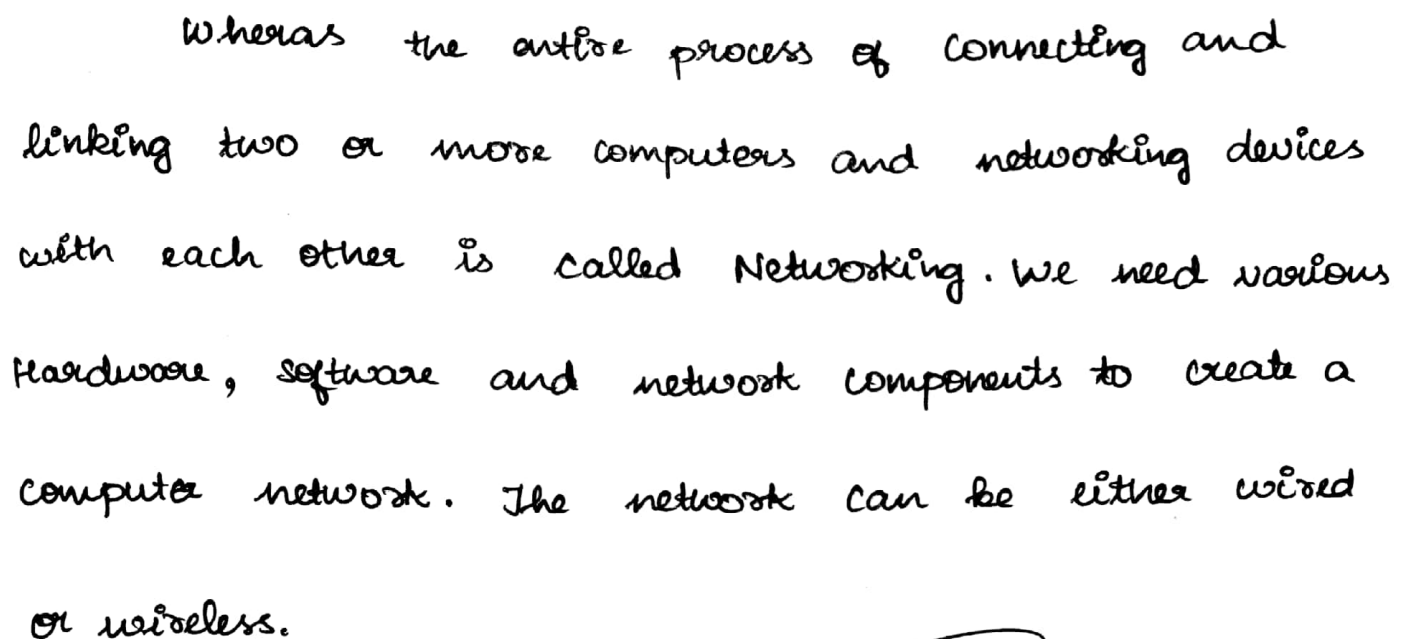 Wheras the entire process of connecting and
linking two or more computers and networking devices
with each other is called Networking. We need various
Hardware, software and network components to create a
computer network. The network can be either wired
or wireless.